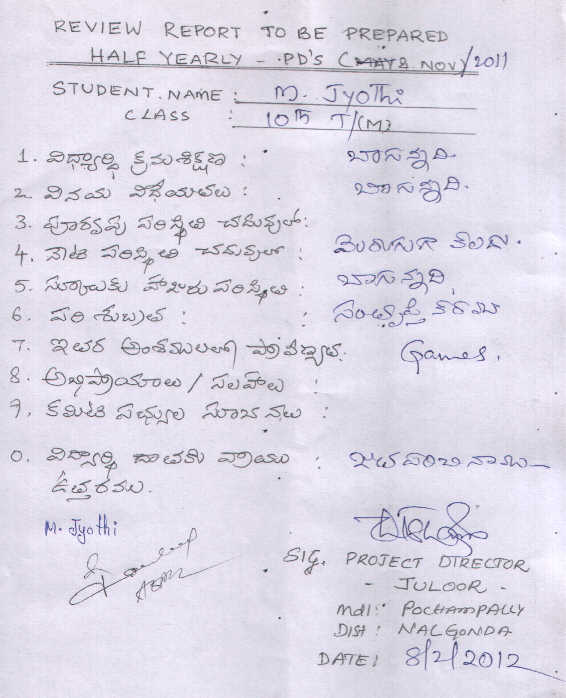 REVIEW REPORT TO BE PREPARED
HALF YEARLY - PD'S (MAY& NOV)/2011
STUDENT.NAME : M. Jyothi
CLASS : 10th T/(M)
1. విద్యార్థి క్రమశిక్షణ : బాగున్నది.
2. వినయ విధేయతలు : బాగున్నది.
3. పూర్వపు పరిస్థితి చదువులో:
4. నేటి పరిస్థితి చదువులో : మెరుగుగా కలదు.
5. స్కూలుకు హాజరు పరిస్థితి : బాగున్నది,
6. పరిశుభ్రత : సంతృప్తి కరము
7. ఇతర అంశములలో ప్రావీణ్యత. Games.
8. అభిప్రాయాలు / సలహాలు :
9. కమిటి సభ్యుల సూచనలు :
0. విద్యార్థి దాతకు వ్రాయు :
ఉత్తరము.
M. Jyothi
SIG. PROJECT DIRECTOR
- JULOOR -
Mdl: POCHAMPALLY
DIST : NALGONDA
DATE: 8/2/2012